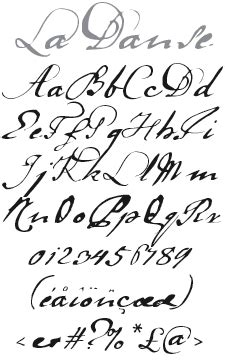 La Danse
AaBbCcDd
EeFfGgHhIi
JjKkLlMm
NnOoPpQqRr
0123456789
(éåîöñçœæ)
< er#?% *£@>